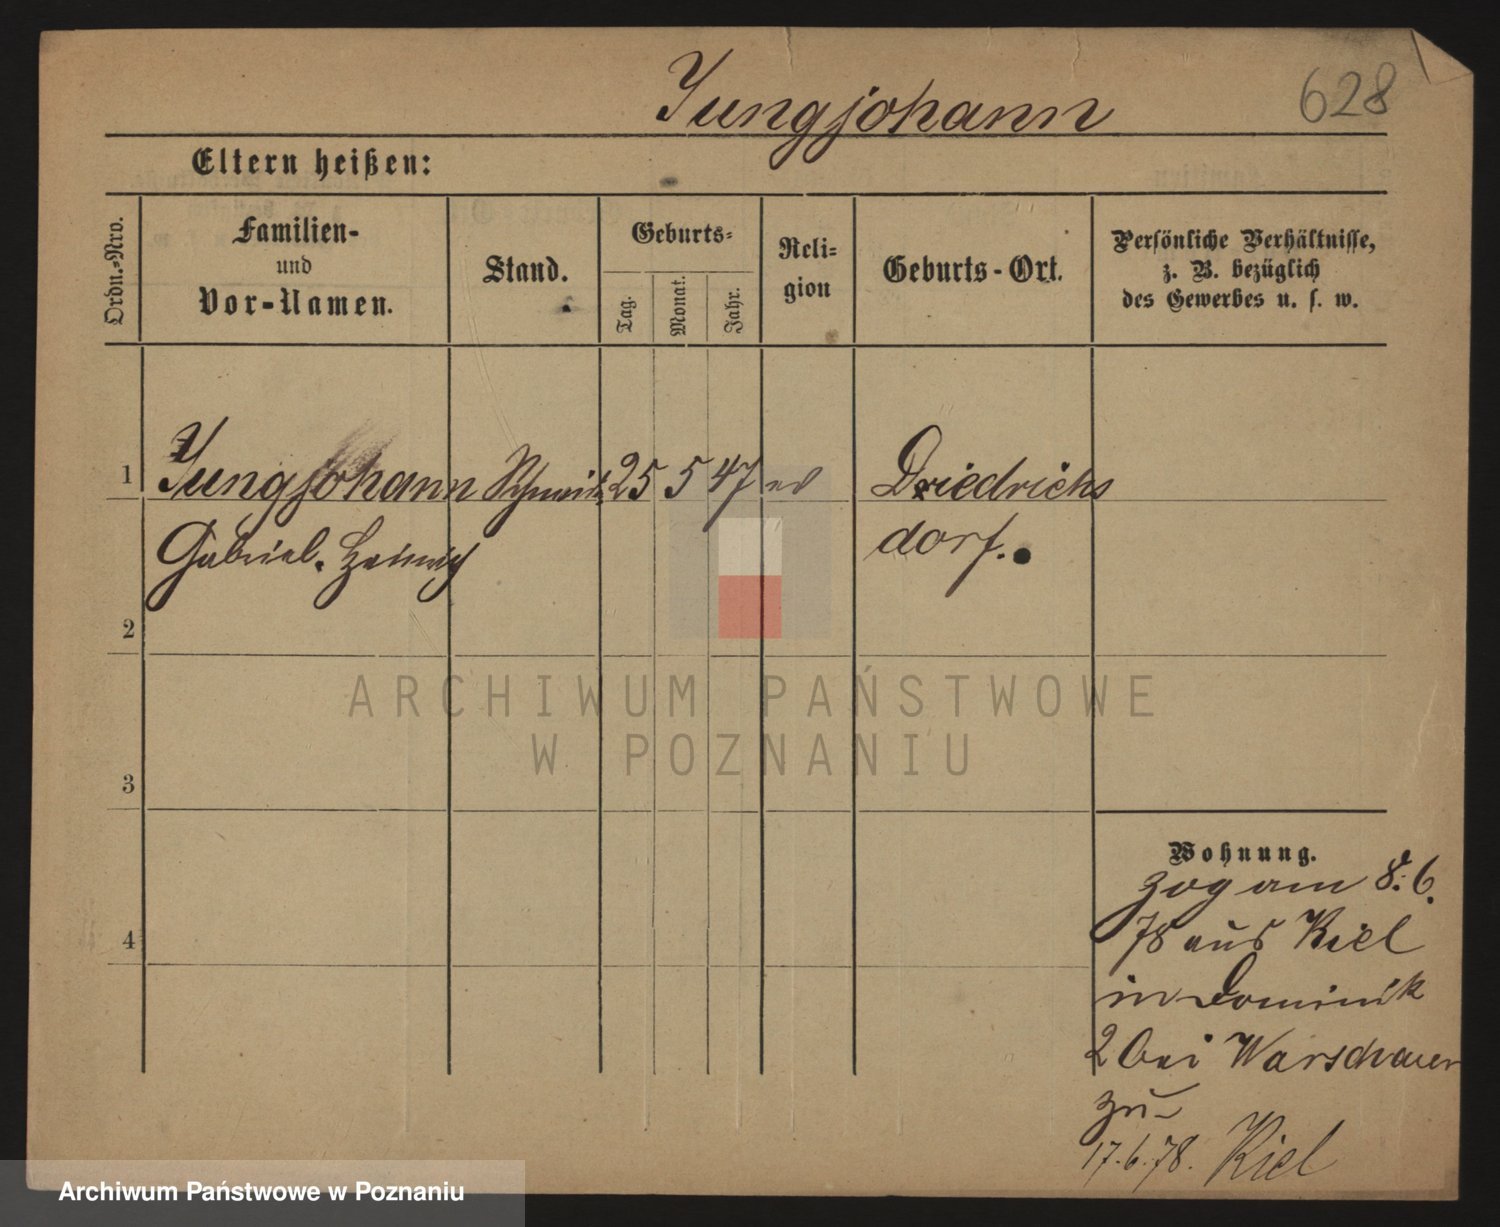 Jungjohann
628
Eltern heißen:
Ordn.-Nro.
Familien-
und
Vor-Namen.
Stand.
Geburts-
Tag.
Monat.
Jahr.
Reli-
gion
Geburts-Ort.
Persönliche Verhältnisse,
z. B. bezüglich
des Gewerbes u. s. w.
1 Jungjohann Schmidt 25 5 47 ev Driedrichs
Gabriel. Heinrich dorf.
2
3
4
Wohnung.
zog am 8.6.
78 aus Kiel
in Dominik
2 bei Warschauer
zu
17.6.78. Kiel
ARCHIWUM PAŃSTWOWE
W POZNANIU
Archiwum Państwowe w Poznaniu